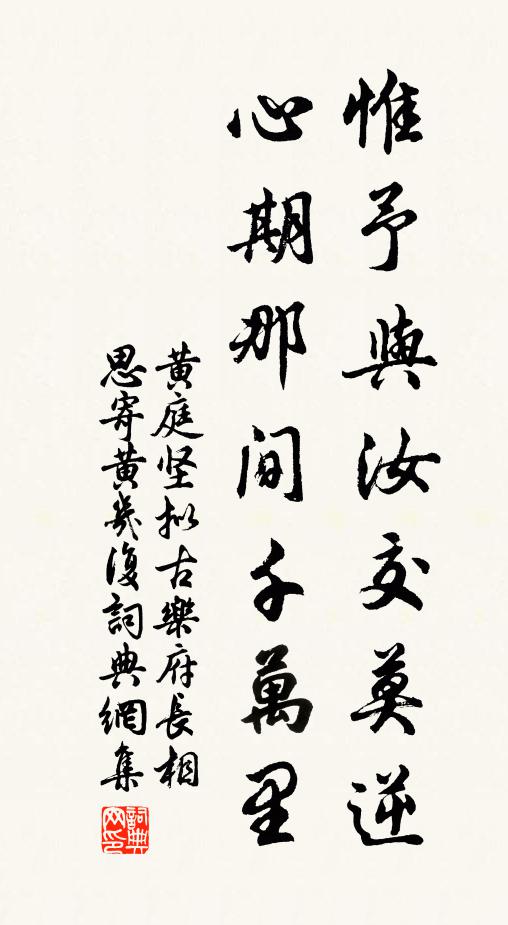 惟予與汝交莫逆
心期那間千萬里
黄庭坚拟古樂府長相
思寄黄幾復詞典網集
詞典网印